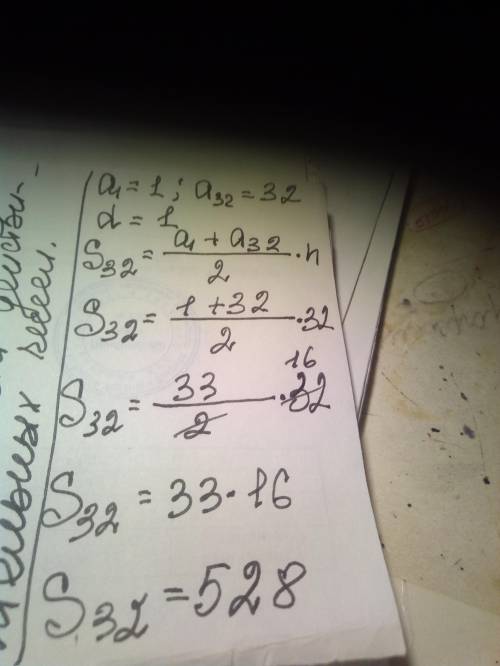 a₁ = 1 ; a₃₂ = 32
d = 1
S₃₂ = (a₁ + a₃₂)/2 · n
S₃₂ = (1 + 32)/2 · 32
16
S₃₂ = 33/2 · 32
S₃₂ = 33 · 16
S₃₂ = 528
чисел.